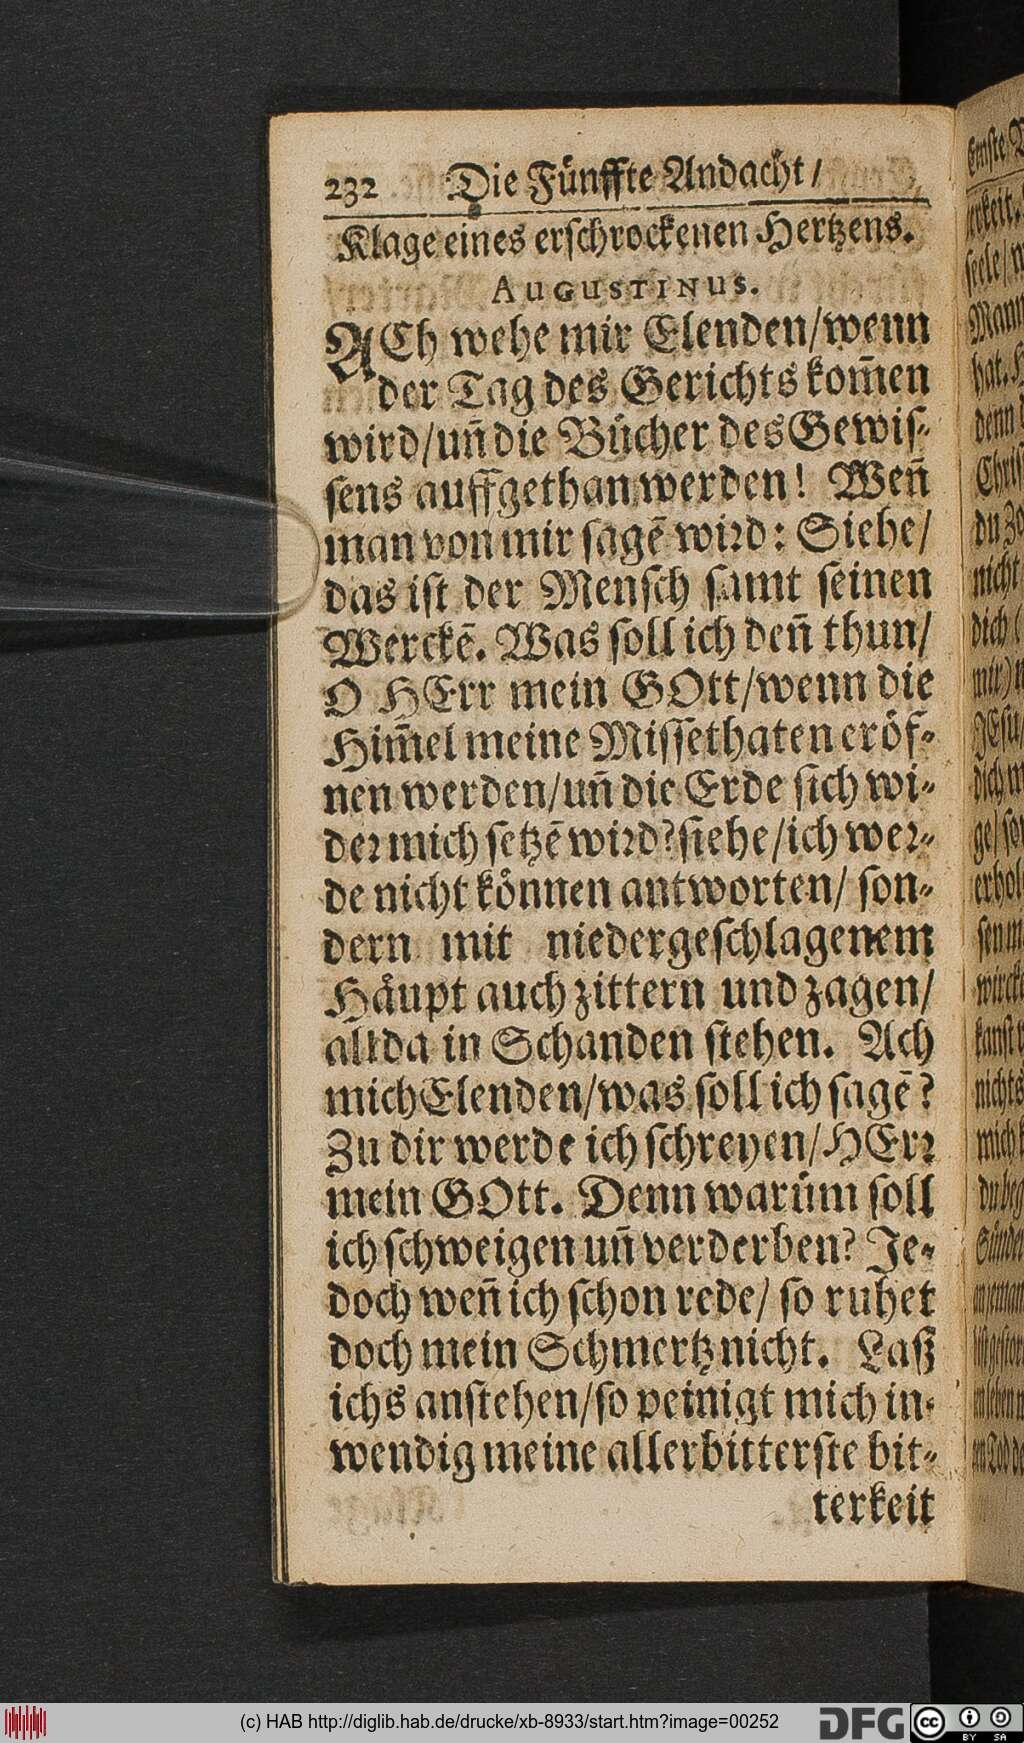 232 Die Fünffte Andacht /
Klage eines erschrockenen Hertzens.
AUGUSTINUS.
ACh wehe mir Elenden/wenn
der Tag des Gerichts kom̃en
wird/uñ die Bücher des Gewis-
sens auffgethan werden! Weñ
man von mir sagẽ wird: Siehe/
das ist der Mensch samt seinen
Werckẽ. Was soll ich deñ thun/
O HErr mein GOtt/wenn die
Him̃el meine Missethaten eröf-
nen werden/uñ die Erde sich wi-
der mich setzẽ wird? siehe/ich wer-
de nicht können antworten/ son-
dern mit niedergeschlagenem
Häupt auch zittern und zagen/
allda in Schanden stehen. Ach
mich Elenden/was soll ich sagẽ?
Zu dir werde ich schreyen/HErr
mein GOtt. Denn warüm soll
ich schweigen uñ verderben? Je-
doch weñ ich schon rede/ so ruhet
doch mein Schmertz nicht. Laß
ichs anstehen/so peinigt mich in-
wendig meine allerbitterste bit-
terkeit
(c) HAB http://diglib.hab.de/drucke/xb-8933/start.htm?image=00252
DFG
cc BY SA